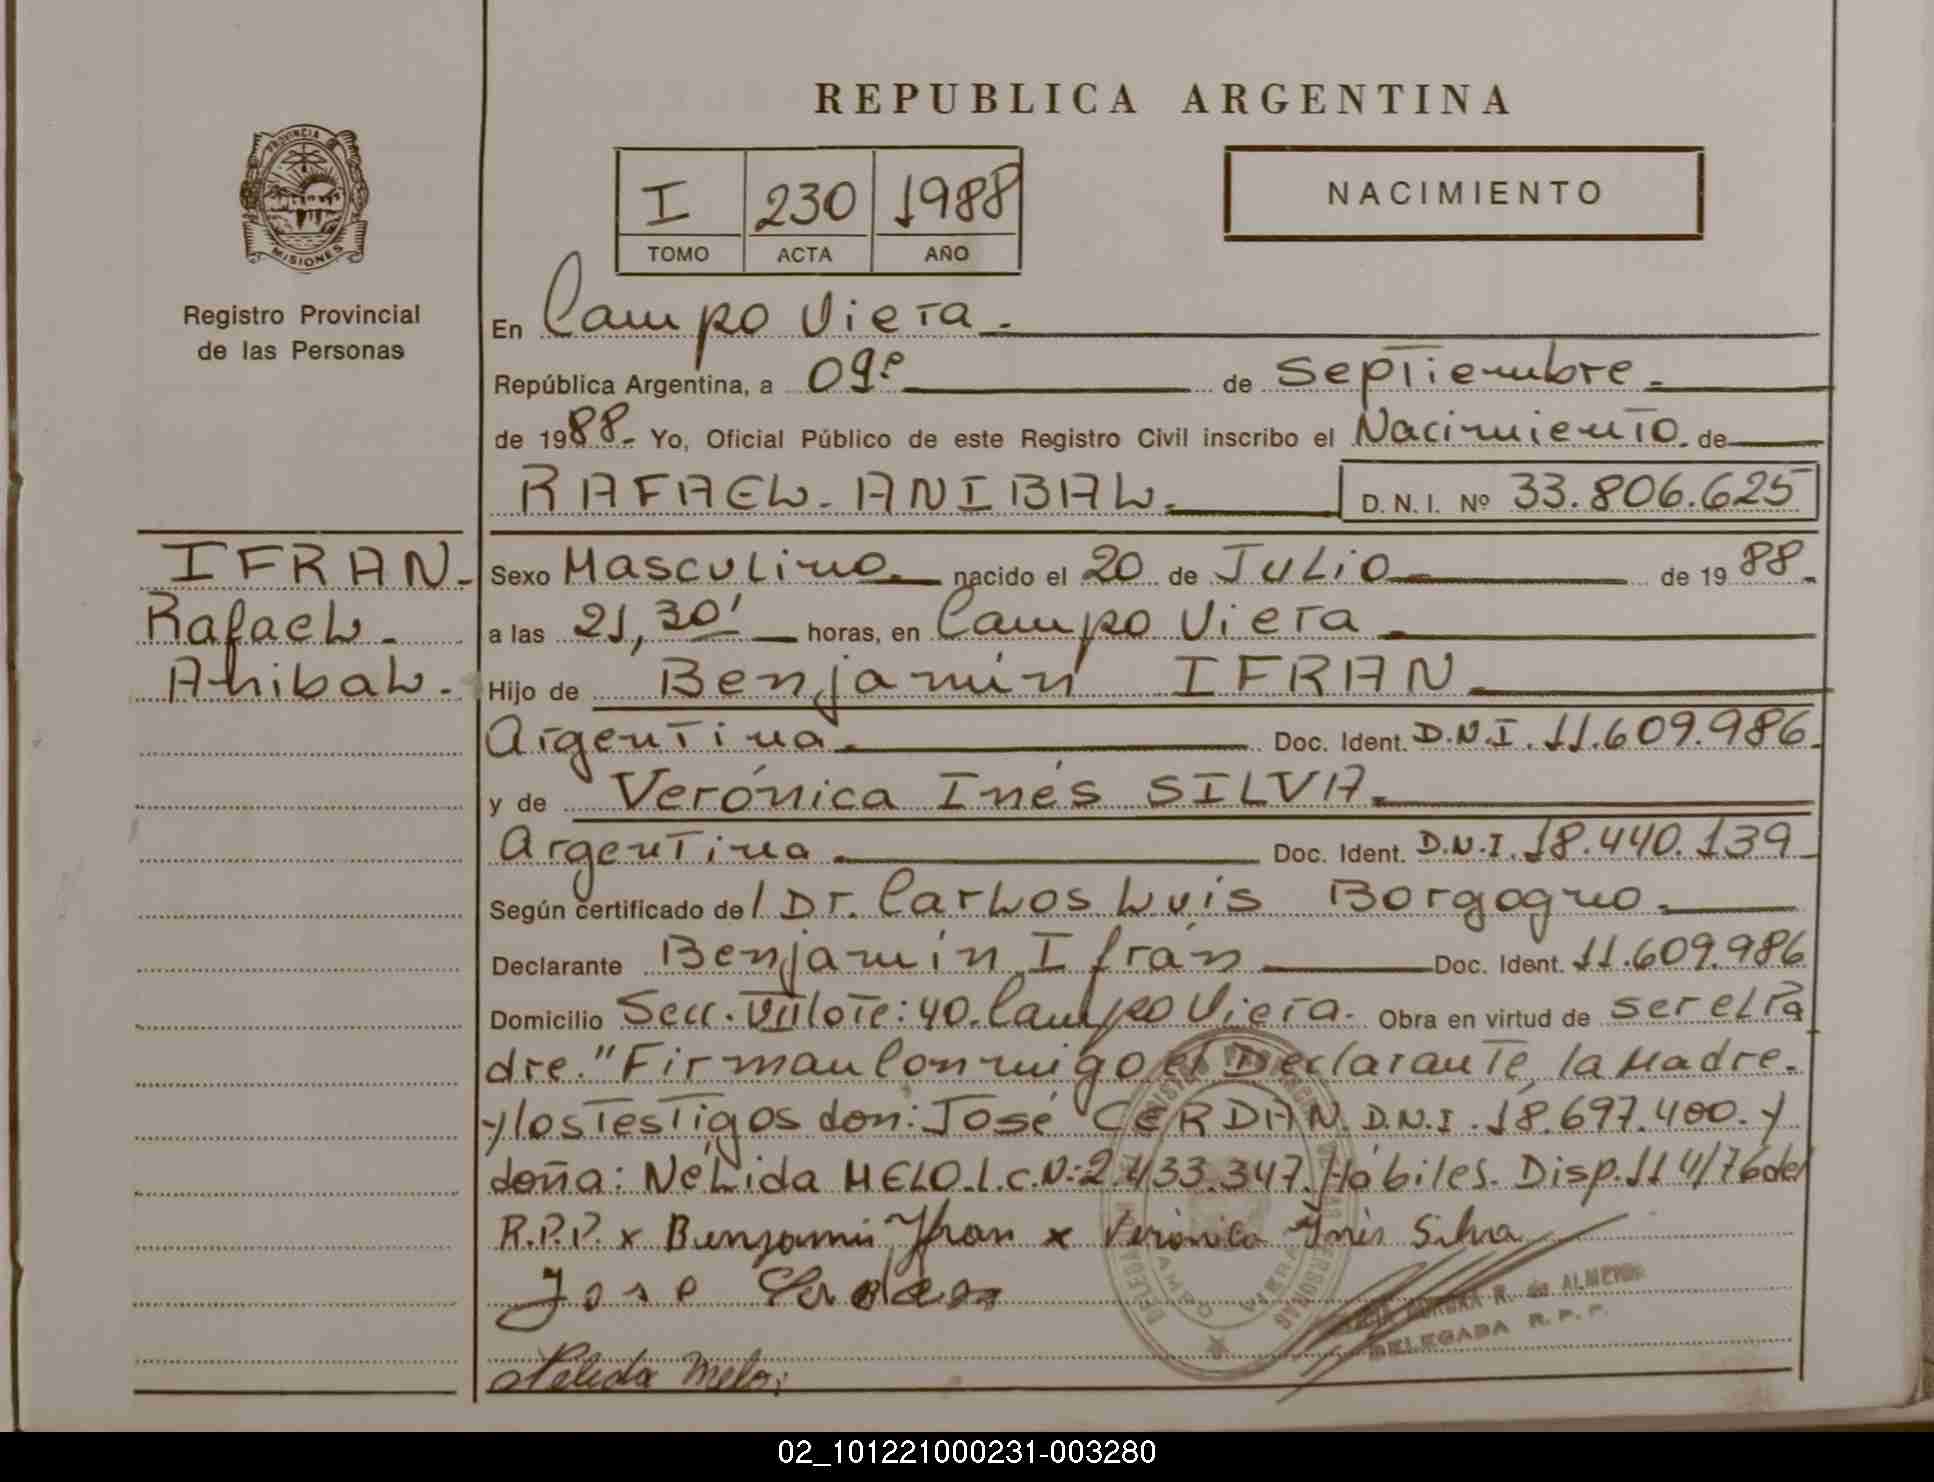 REPUBLICA ARGENTINA
PROVINCIA
MISIONES
Registro Provincial
de las Personas
I 230 1988
TOMO ACTA AÑO
NACIMIENTO
En Campo Viera.
República Argentina, a 09º de Septiembre.
de 1988. Yo, Oficial Público de este Registro Civil inscribo el Nacimiento de
RAFAEL. ANIBAL. D. N. I. Nº 33.806.625
IFRAN.
Rafael.
Anibal.
Sexo Masculino. nacido el 20 de Julio de 1988.
a las 21,30' horas, en Campo Viera
Hijo de Benjamín IFRAN
Argentina. Doc. Ident. D.N.I. 11.609.986.
y de Verónica Inés SILVA.
Argentina. Doc. Ident. D.N.I. 18.440.139
Según certificado del Dr. Carlos Luis Borgogno.
Declarante Benjamín Ifrán Doc. Ident. 11.609.986
Domicilio Secc. VIII lote: 40. Campo Viera. Obra en virtud de ser el Pa
dre." Firman Conmigo el Declarante, la Madre.
y los Testigos don: José CERDAN. D.N.I. 18.697.400. y
doña: Nélida MELO. L.C.N: 2.433.347. Hábiles. Disp. 114/76 del
R.P.P. x Benjamin Ifran x Verónica Inés Silva
Jose Cerdan
Nelida Melo.
R. de ALMEIDA
DELEGADA R. P. P.
CAMPO VIERA
02_101221000231-003280